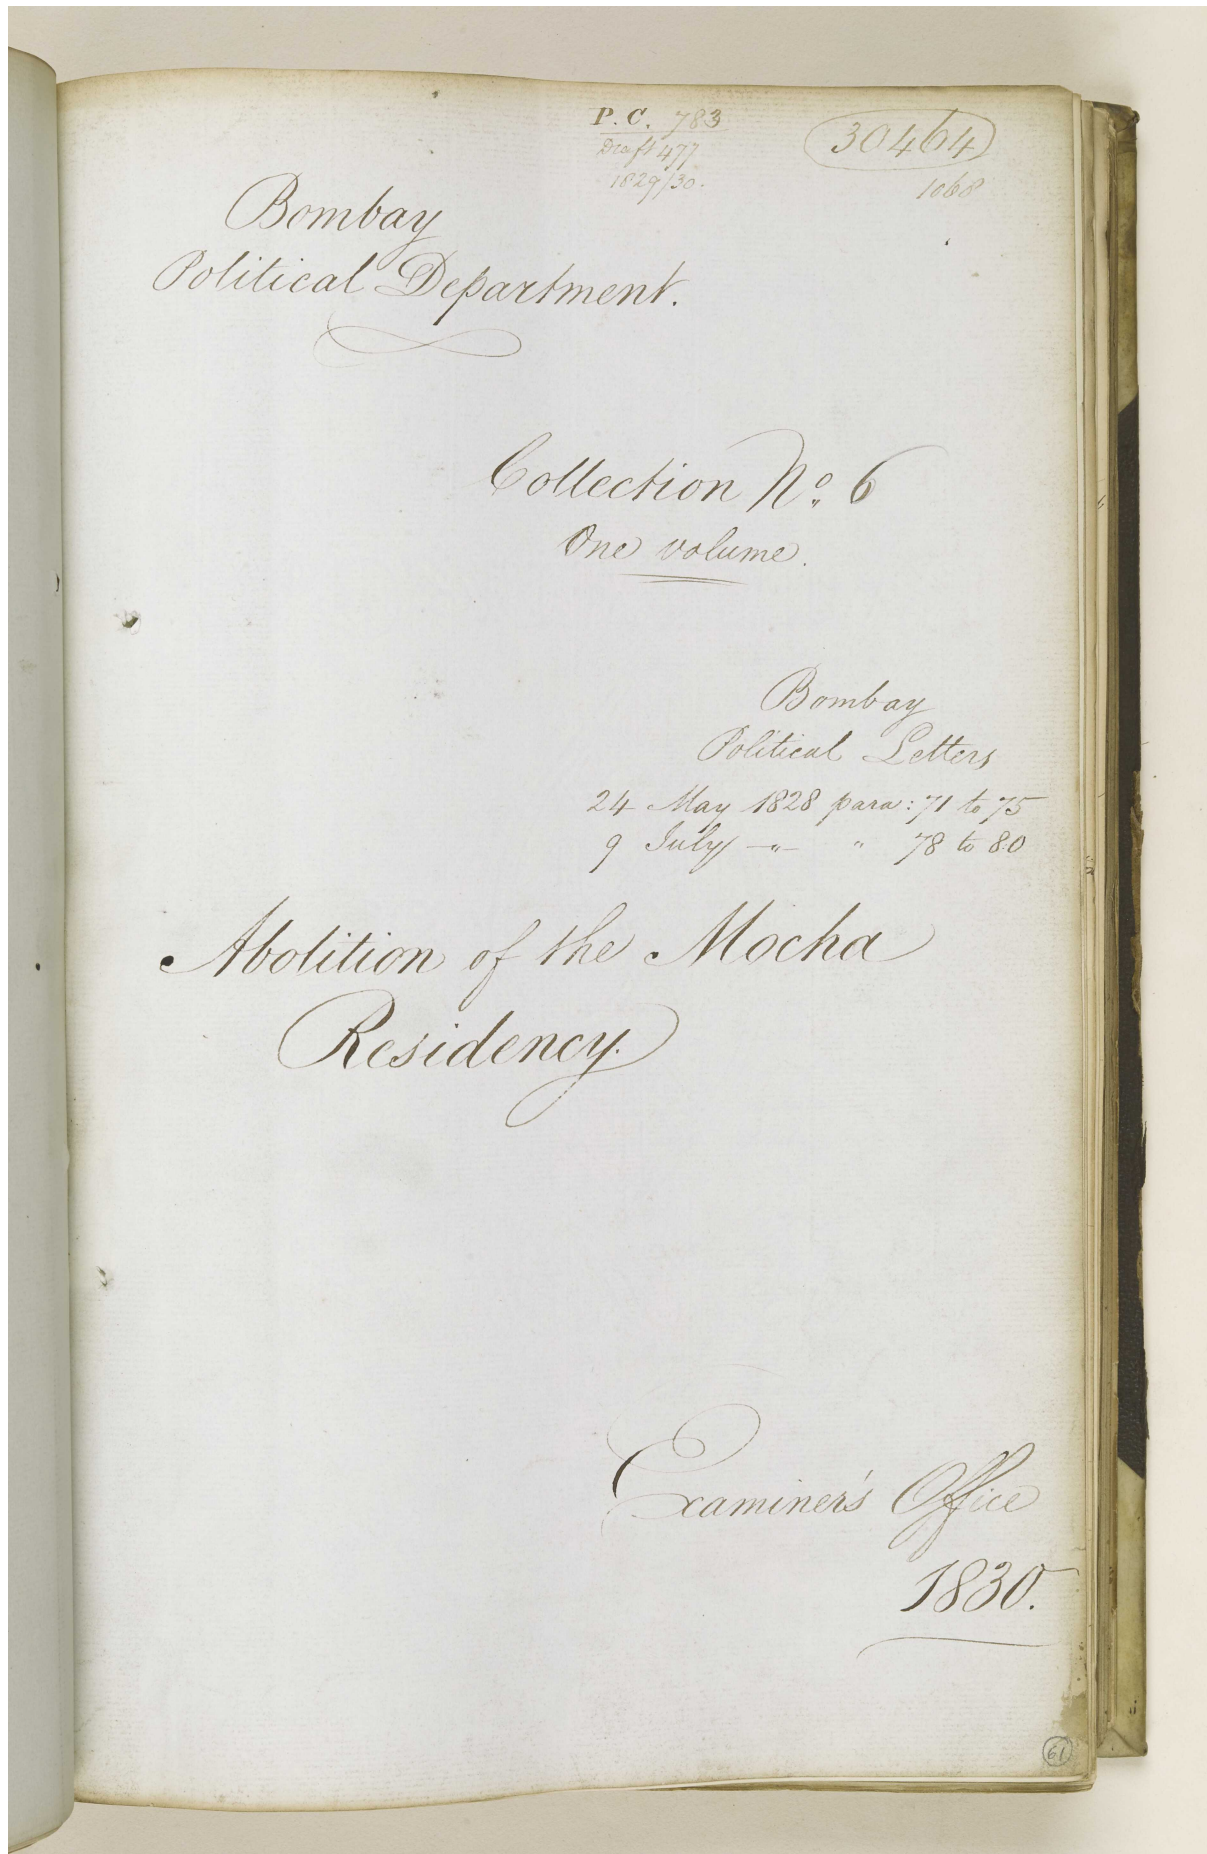 P. C. 783
Draft 477
1829/30.
30464
1068
Bombay
Political Department.
Collection No. 6
One volume.
Bombay
Political Letters
24 May 1828 para: 71 to 75
9 July -"- " 78 to 80
Abolition of the Mocha
Residency.
Examiner's Office
1830.
61